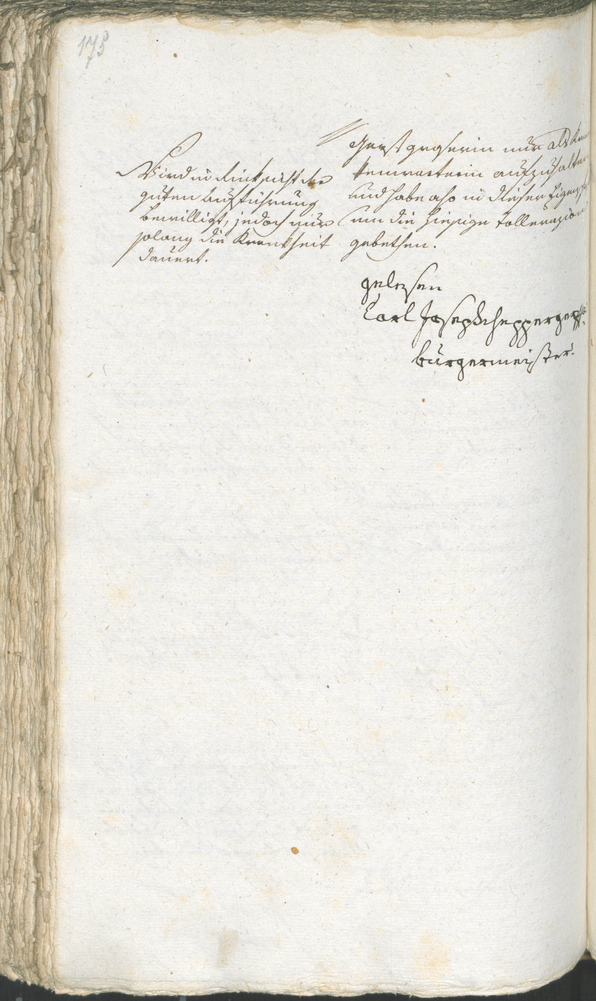 175
Wird in Rücksicht der
guten Aufführung
bewilligt, jedoch nur
solang die Krankheit
dauert.
nur als
kenwarterin aufzuhalten
und habe also in dieser Eigensch
um die hiesige Tollerazion
gebethen.
gelesen
Carl Joseph
bürgermeister.